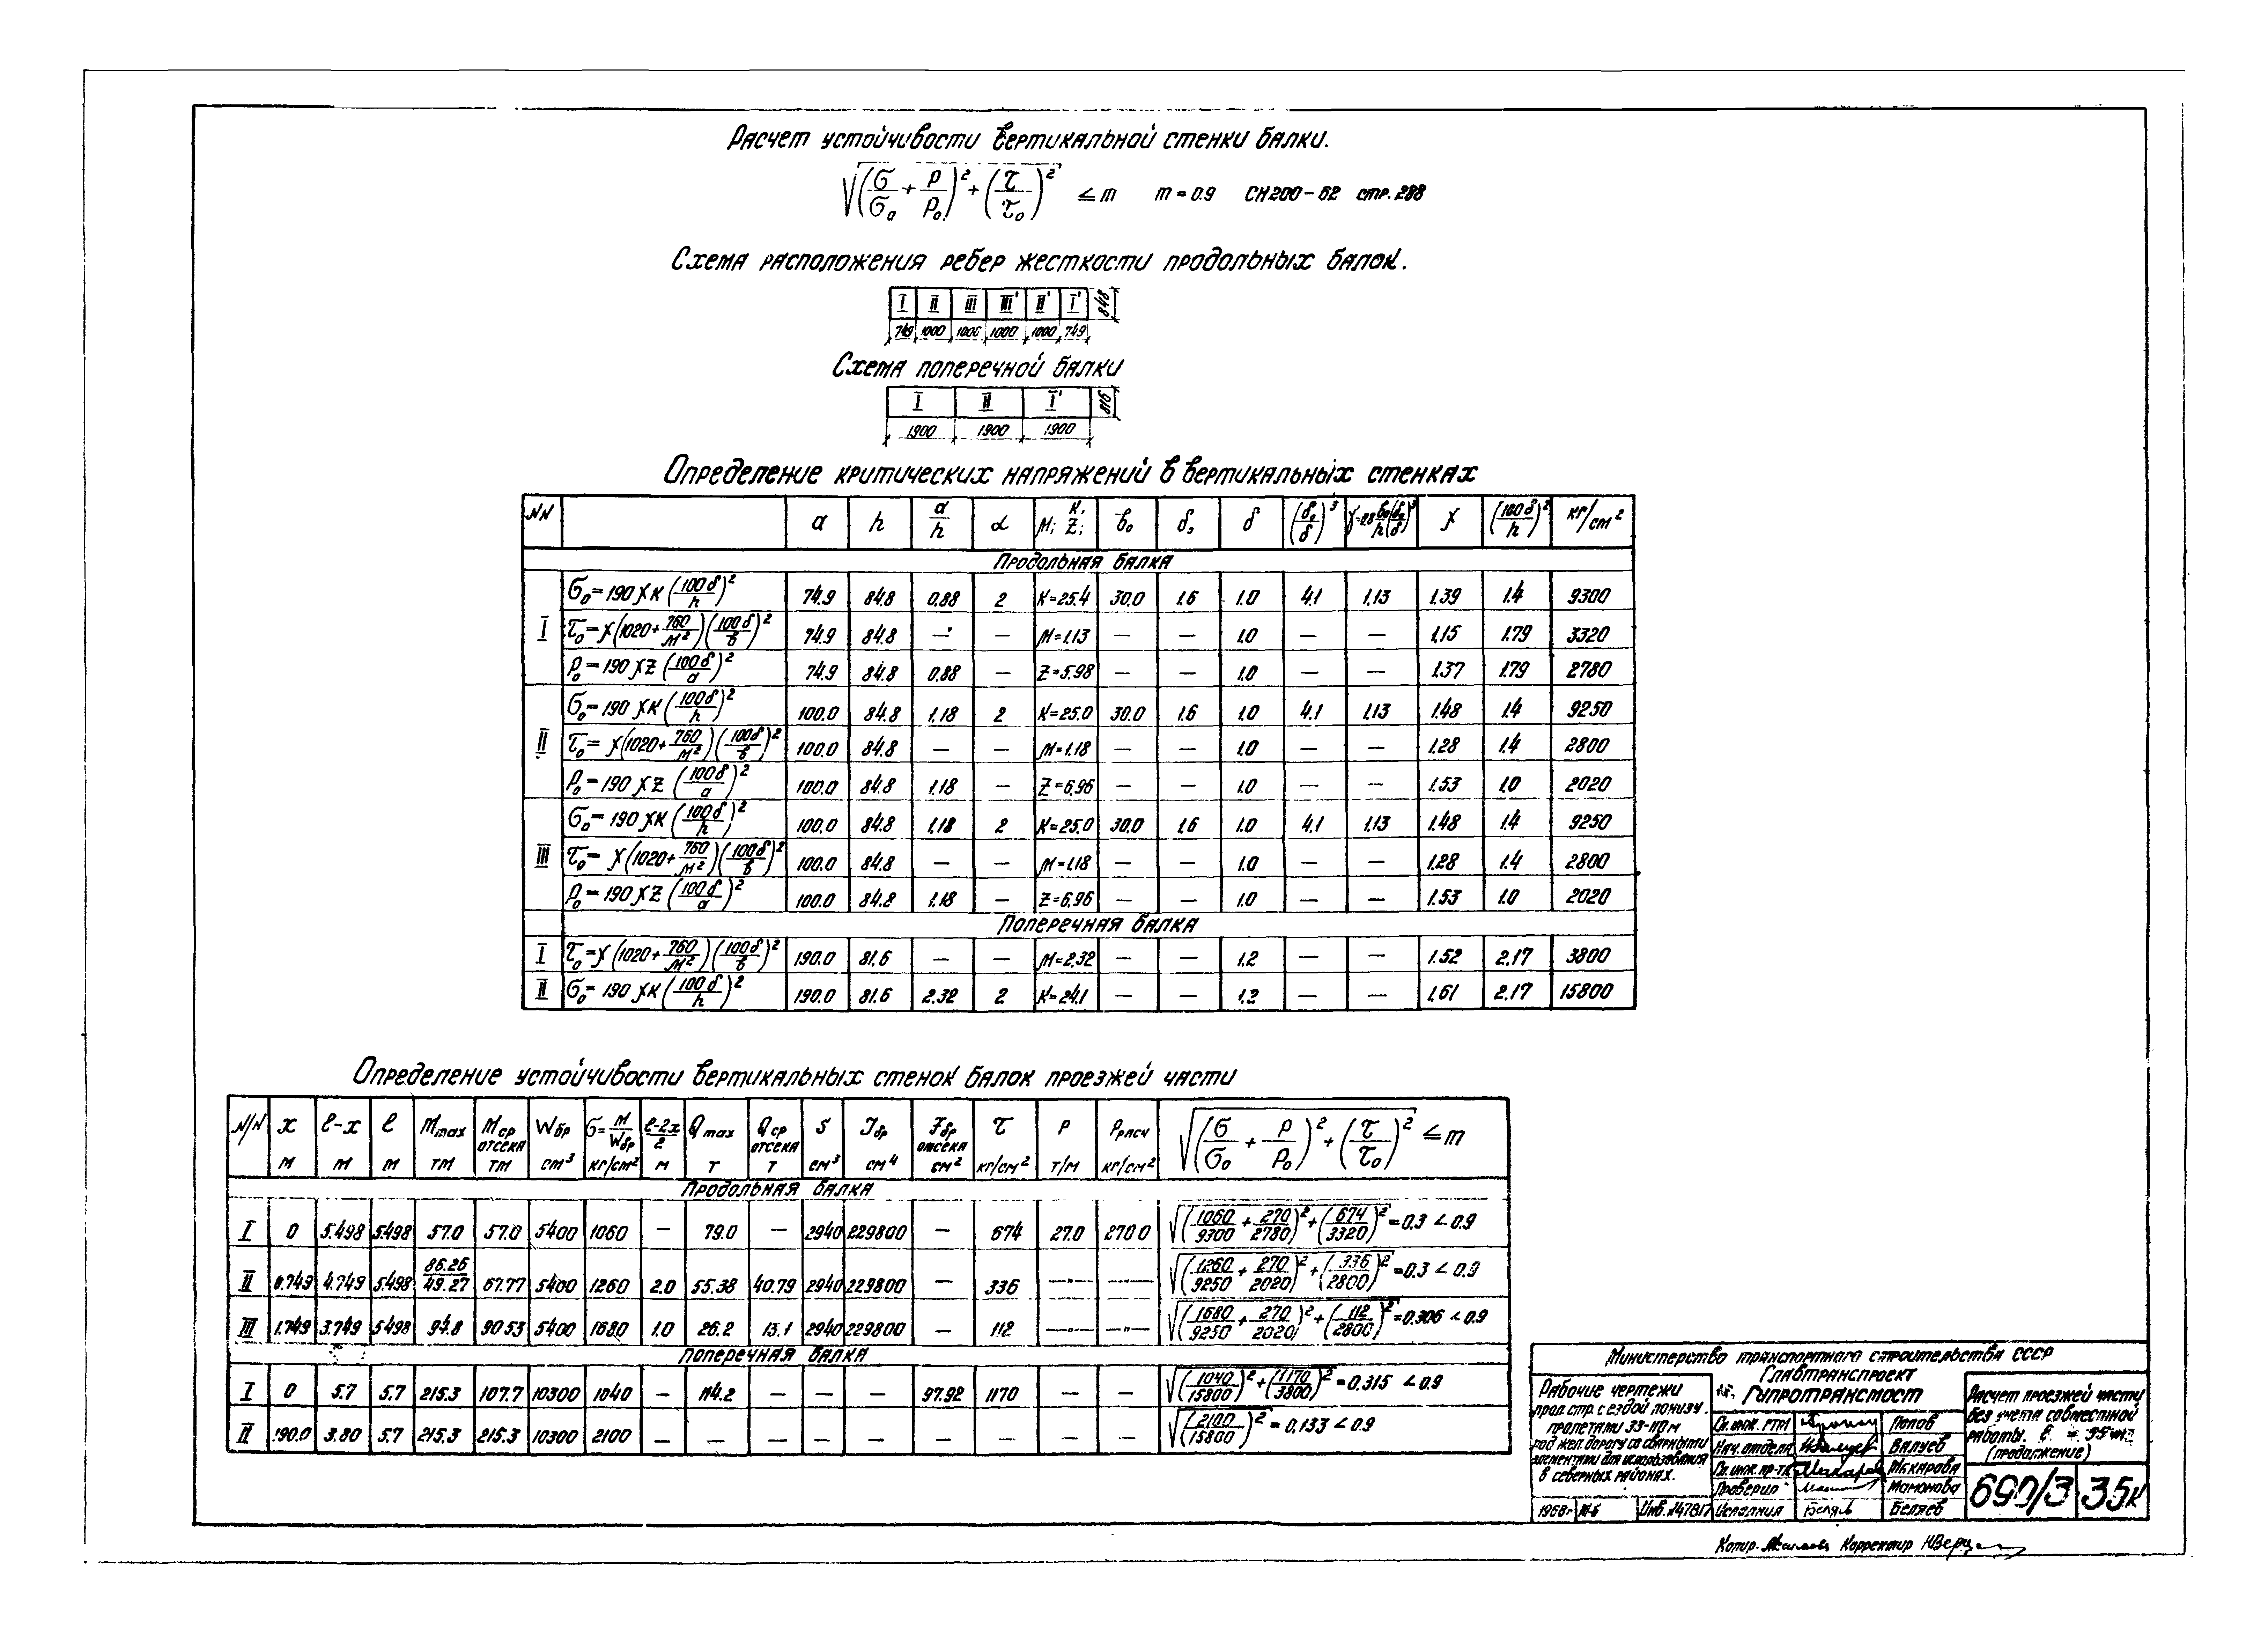 Расчет устойчивости вертикальной стенки балки.
√((σ/σ₀ + P/P₀)² + (τ/τ₀)²) ≤ m   m = 0.9   СН 200-62 стр. 288
Схема расположения ребер жесткости продольных балок.
I II III III' II' I' 848
749 1000 1000 1000 1000 749
Схема поперечной балки
I II I' 816
1900 1900 1900
Определение критических напряжений в вертикальных стенках
NN a h a/h α K, M; Z; b₀ δ₂ δ (δ₂/δ)³ γ=0.8 b₀/h (δ₂/δ)³ χ (100δ/h)² кг/см²
Продольная балка
I σ₀=190χK(100δ/h)² 74.9 84.8 0.88 2 K=25.4 30.0 1.6 1.0 4.1 1.13 1.39 1.4 9300
τ₀=χ(1020+760/м²)(100δ/b)² 74.9 84.8 — — M=1.13 — — 1.0 — — 1.15 1.79 3320
P₀=190χZ(100δ/a)² 74.9 84.8 0.88 — Z=5.98 — — 1.0 — — 1.37 1.79 2780
II σ₀=190χK(100δ/h)² 100.0 84.8 1.18 2 K=25.0 30.0 1.6 1.0 4.1 1.13 1.48 1.4 9250
τ₀=χ(1020+760/м²)(100δ/b)² 100.0 84.8 — — M=1.18 — — 1.0 — — 1.28 1.4 2800
P₀=190χZ(100δ/a)² 100.0 84.8 1.18 — Z=6.96 — — 1.0 — — 1.53 1.0 2020
III σ₀=190χK(100δ/h)² 100.0 84.8 1.18 2 K=25.0 30.0 1.6 1.0 4.1 1.13 1.48 1.4 9250
τ₀=χ(1020+760/м²)(100δ/b)² 100.0 84.8 — — M=1.18 — — 1.0 — — 1.28 1.4 2800
P₀=190χZ(100δ/a)² 100.0 84.8 1.18 — Z=6.96 — — 1.0 — — 1.53 1.0 2020
Поперечная балка
I τ₀=χ(1020+760/м²)(100δ/b)² 190.0 81.6 — — M=2.32 — — 1.2 — — 1.52 2.17 3800
II σ₀=190χK(100δ/h)² 190.0 81.6 2.32 2 K=24.1 — — 1.2 — — 1.61 2.17 15800
Определение устойчивости вертикальных стенок балок проезжей части
N/N x ℓ-x ℓ Mmax Mср отсека Wбр σ=M/Wбр ℓ-2x/2 Qmax Qср отсека S Jбр Fбр отсека τ P Pрасч √((σ/σ₀ + P/P₀)² + (τ/τ₀)²) ≤ m
м м м тм тм см³ кг/см² м т т см³ см⁴ см² кг/см² т/м кг/см²
Продольная балка
I 0 5.498 5.498 57.0 57.0 5400 1060 — 79.0 — 2940 229800 — 674 27.0 270.0 √((1060/9300 + 270/2780)² + (674/3320)²) = 0.3 < 0.9
II 0.749 4.749 5.498 86.26/49.27 67.77 5400 1260 2.0 55.38 40.79 2940 229800 — 336 —"— —"— √((1260/9250 + 270/2020)² + (336/2800)²) = 0.3 < 0.9
III 1.749 3.749 5.498 94.8 90.53 5400 1680 1.0 26.2 13.1 2940 229800 — 112 —"— —"— √((1680/9250 + 270/2020)² + (112/2800)²) = 0.306 < 0.9
Поперечная балка
I 0 5.7 5.7 215.3 107.7 10300 1040 — 114.2 — — — 97.92 1170 — — √((1040/15800)² + (1170/3800)²) = 0.315 < 0.9
II 190.0 3.80 5.7 215.3 215.3 10300 2100 — — — — — — — — — √((2100/15800)²) = 0.133 < 0.9
Министерство транспортного строительства СССР
Главтранспроект
Гипротрансмост
Рабочие чертежи
прол. стр. с ездой понизу
пролетами 33-110 м
под жел. дорогу со сварными
элементами для использования
в северных районах.
1968г М-б Инв. №47817
Гл. инж. ГТМ Попов
Нач. отдела Валуев
Гл. инж. пр-та Макарова
Проверил Мамонова
Исполнил Беляев
Расчет проезжей части
без учета совместной
работы. ℓ = 55 м.
(продолжение)
690/3 35к
Копир. Корректир